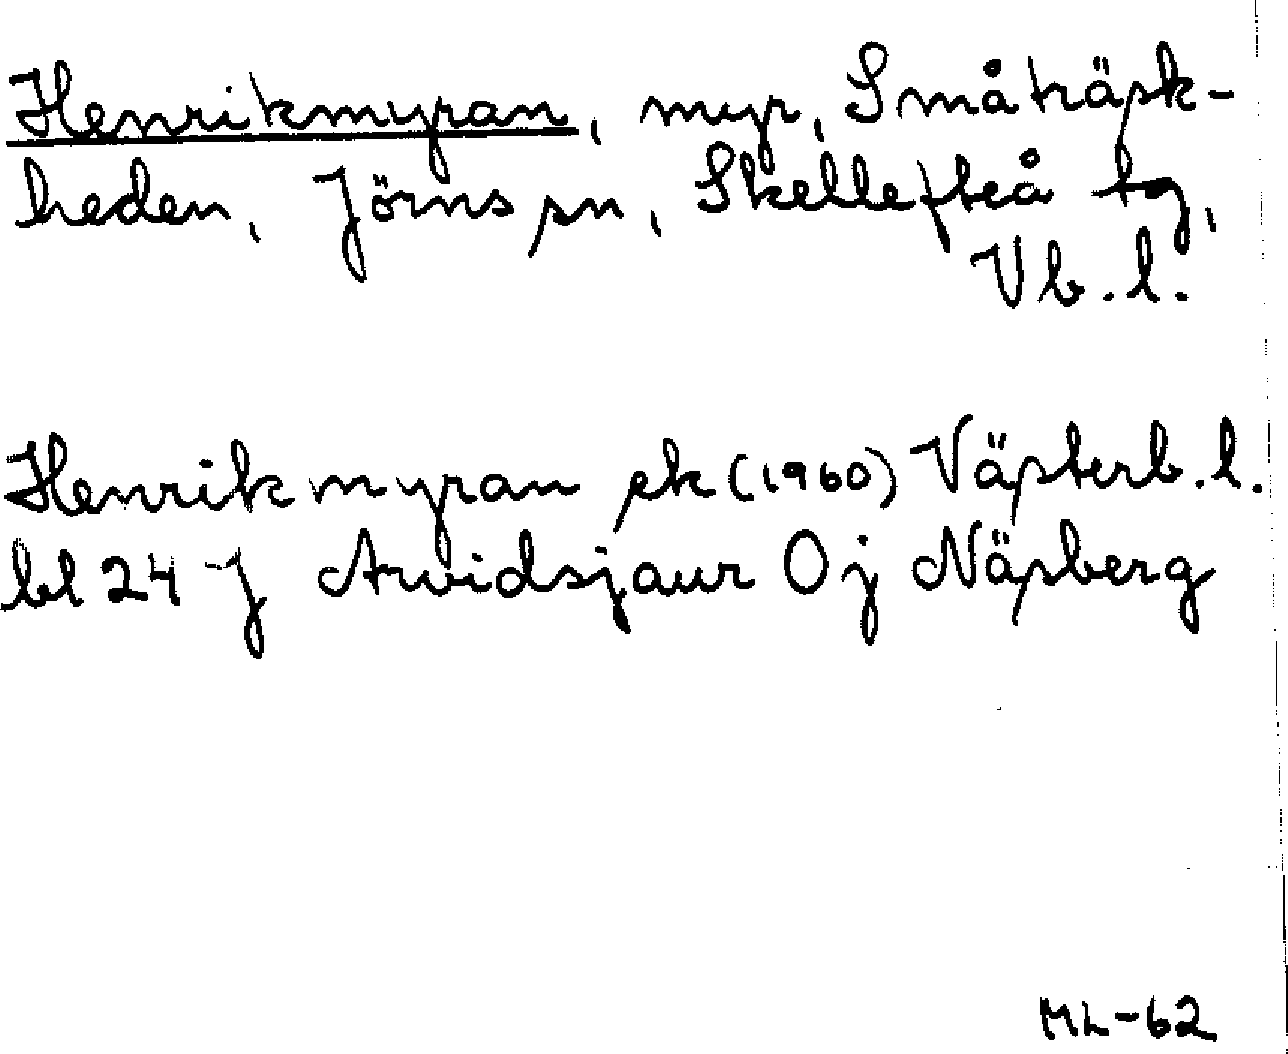 Henrikmyran, myr, Småträsk-
heden, Jörns sn, Skellefteå tg,
Vb.l.
Henrikmyran ek (1960) Västerb.l.
bl 24 J Arvidsjaur Oj Näsberg
ML-62